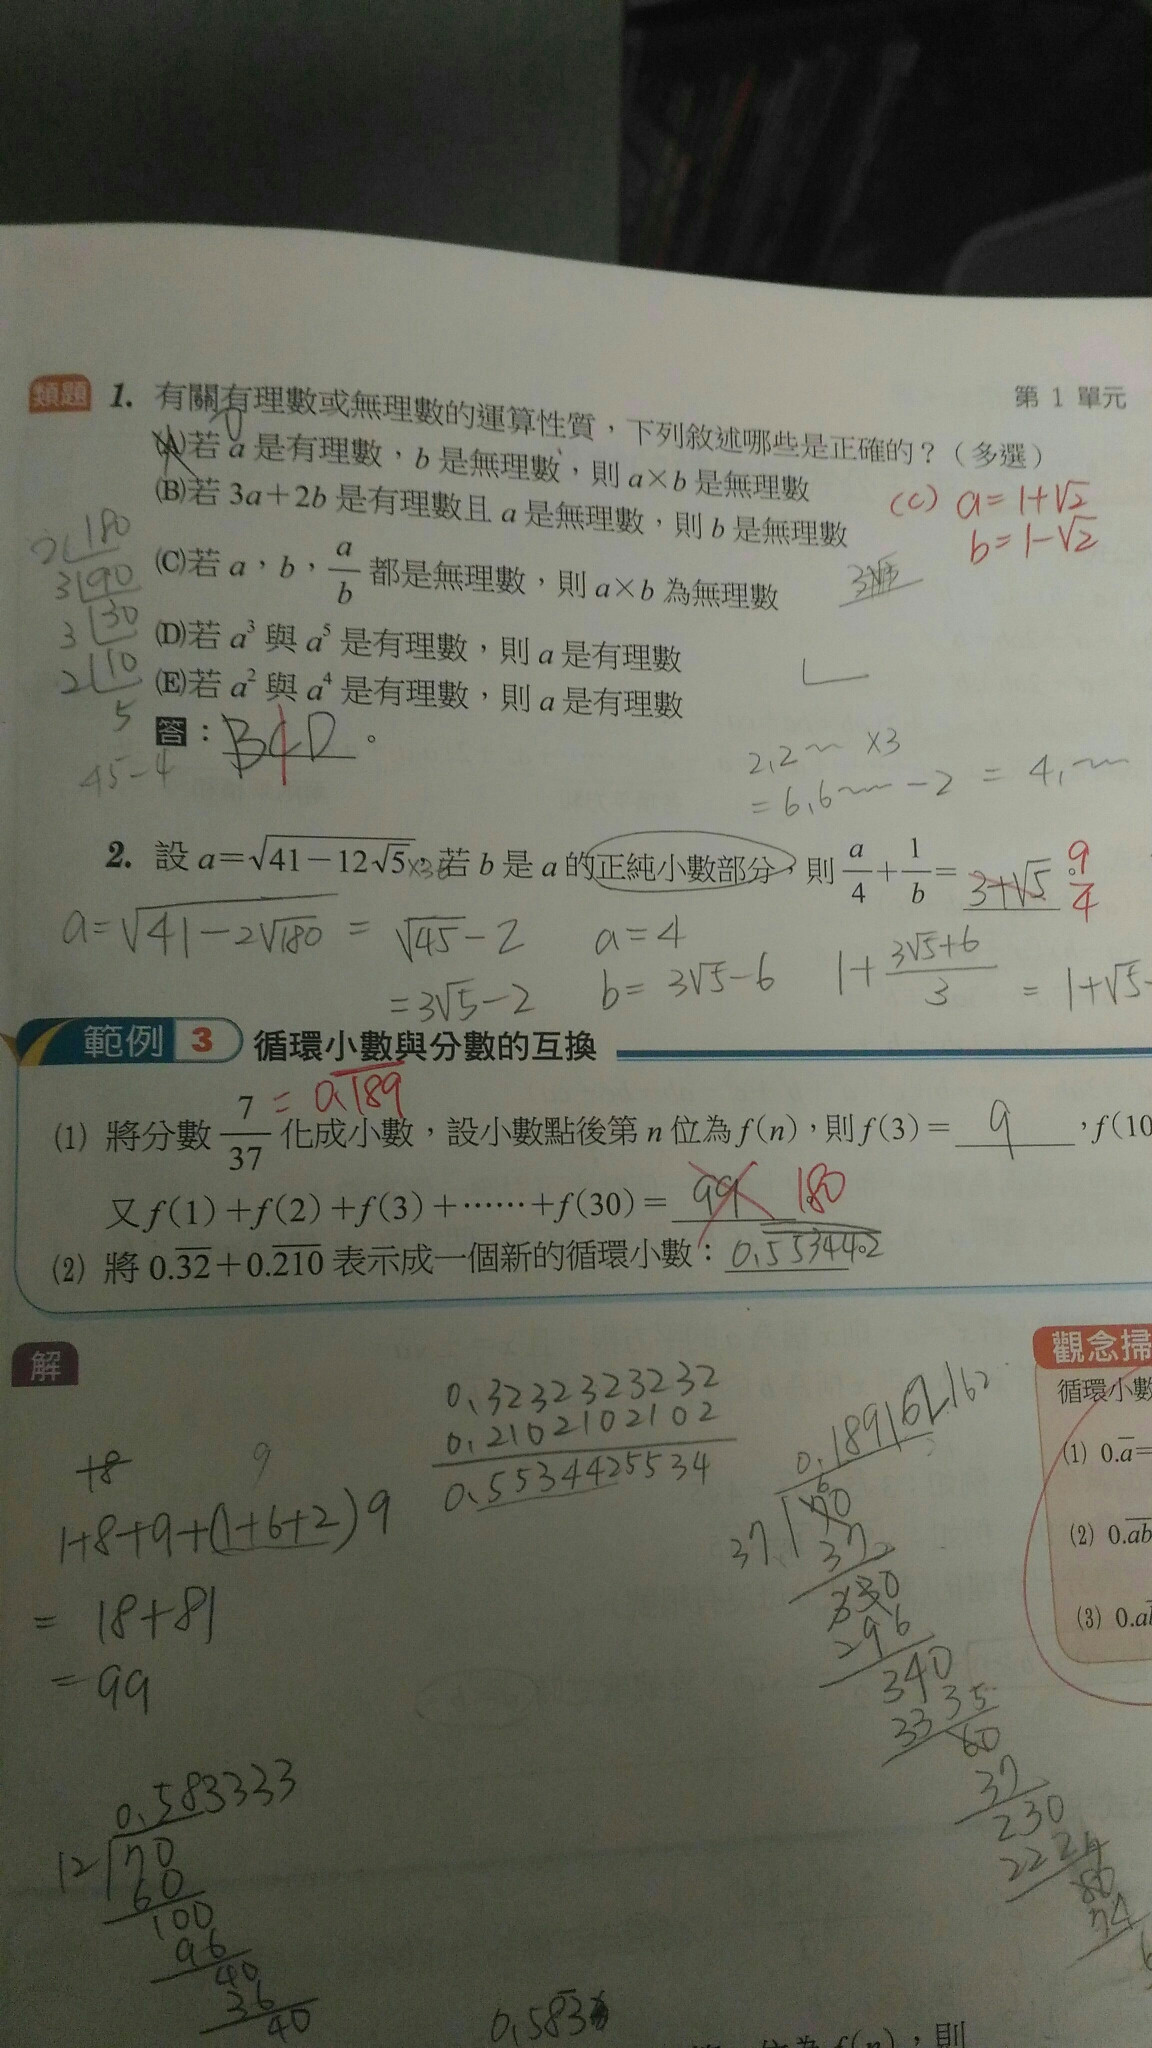 第 1 單元
類題 1. 有關有理數或無理數的運算性質，下列敘述哪些是正確的？（多選）
(A)若 a 是有理數，b 是無理數，則 a×b 是無理數
(B)若 3a+2b 是有理數且 a 是無理數，則 b 是無理數
(C) a=1+√2
b=1-√2
(C)若 a，b，a/b 都是無理數，則 a×b 為無理數
(D)若 a³ 與 a⁵ 是有理數，則 a 是有理數
(E)若 a² 與 a⁴ 是有理數，則 a 是有理數
答：BCD。
2 180
3 90
3 30
2 10
5
45-4
2.2~ ×3
=6.6~-2 = 4.~
2. 設 a=√(41-12√5)，若 b 是 a 的正純小數部分，則 a/4+1/b= 3+√5。 9/4
a=√(41-2√180) = √45-2
=3√5-2
a=4
b=3√5-6
1+(3√5+6)/3 = 1+√5-
範例 3 循環小數與分數的互換
= 0.189
(1) 將分數 7/37 化成小數，設小數點後第 n 位為 f(n)，則 f(3)= 9 ，f(10
又 f(1)+f(2)+f(3)+……+f(30)= 99 180
(2) 將 0.32+0.210 表示成一個新的循環小數：0.553442
解
觀念掃
循環小數
(1) 0.a=
(2) 0.ab
(3) 0.a
0.3232323232
0.2102102102
0.5534425534
+8
9
1+8+9+(1+6+2)9
= 18+81
= 99
0.189162162
37 70
37
330
296
340
60
37
230
222
80
74
0.583333
12 70
60
100
96
40
36
40
0.583
位為 f(n)，則